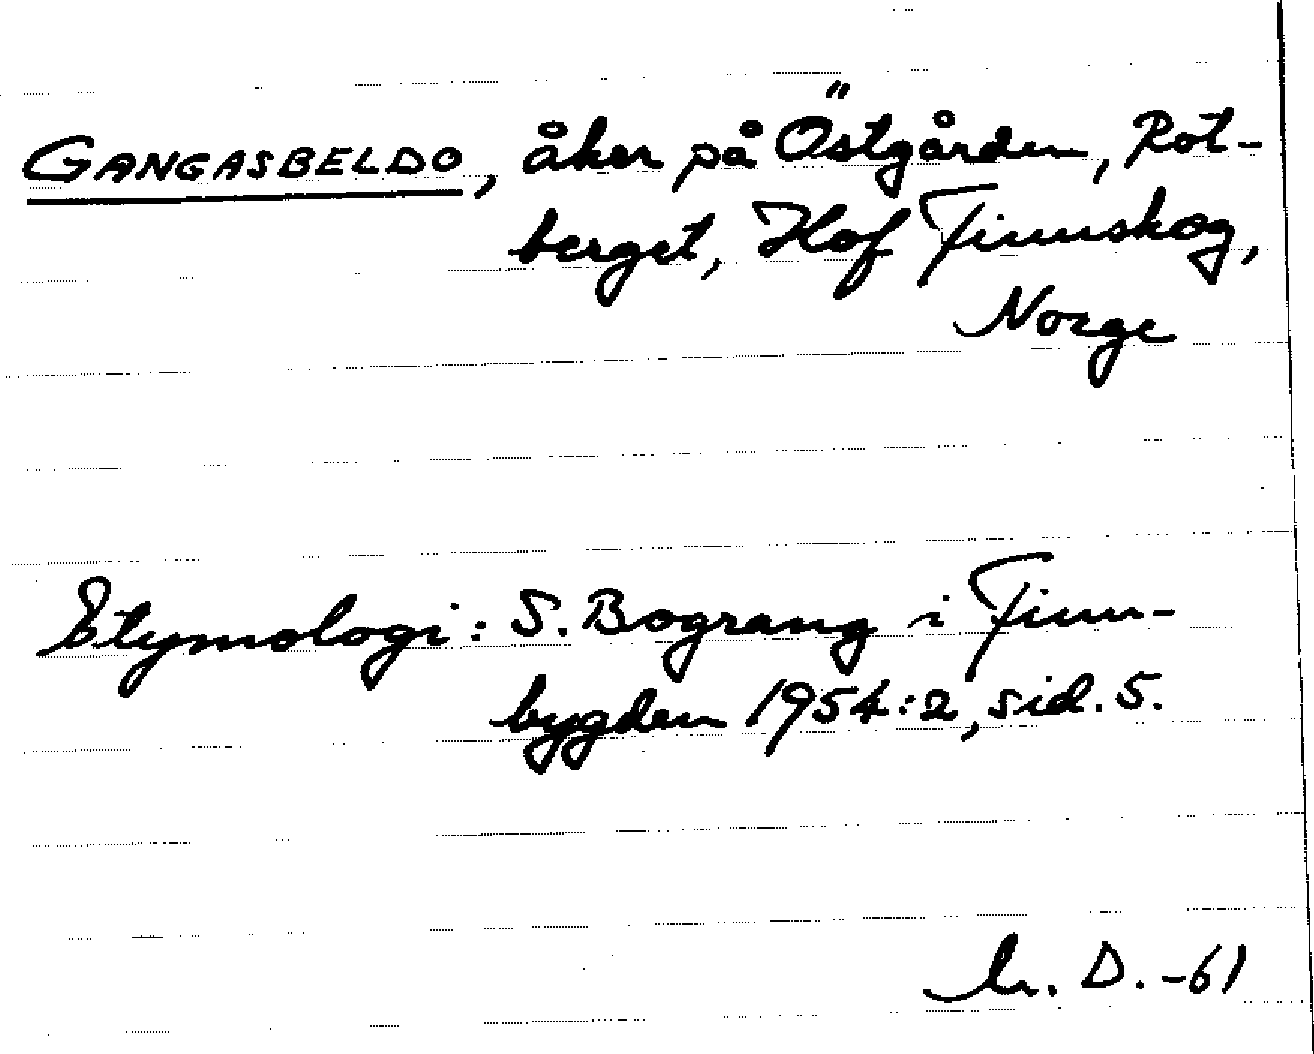 GANGASBELDO, åker på Östgården, Rot-
berget, Hof Finnskog,
Norge
Etymologi: S. Bograng i Finn-
bygden 1954:2, sid. 5.
D. -61